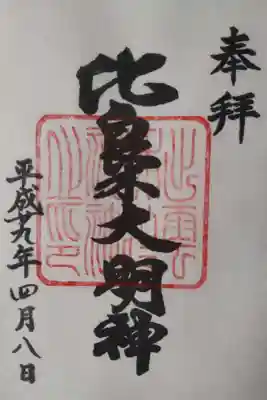 奉拝
比良木大明神
平成十九年四月八日